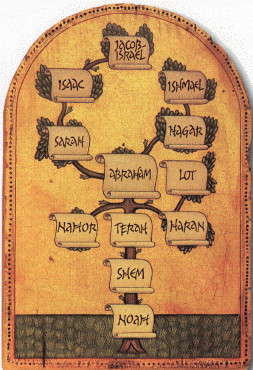 JACOB-
ISRAEL
ISAAC
ISHMAEL
SARAH
HAGAR
ABRAHAM
LOT
NAHOR
TERAH
HARAN
SHEM
NOAH